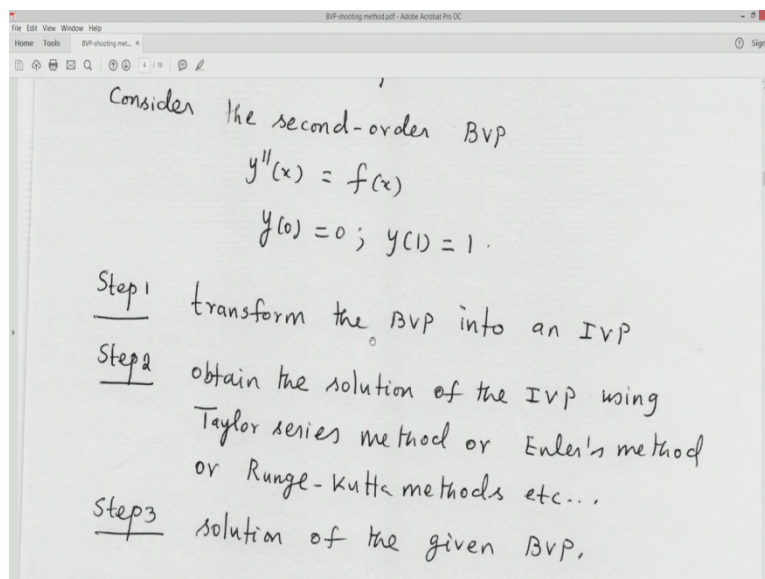 BVP-shooting method.pdf - Adobe Acrobat Pro DC
File Edit View Window Help
Home Tools BVP-shooting met... × Sign
4 / 19
Consider the second-order BVP
y''(x) = f(x)
y(0) = 0; y(1) = 1.
Step 1 transform the BVP into an IVP
Step 2 obtain the solution of the IVP using
Taylor series method or Euler's method
or Runge-Kutta methods etc...
Step 3 solution of the given BVP.